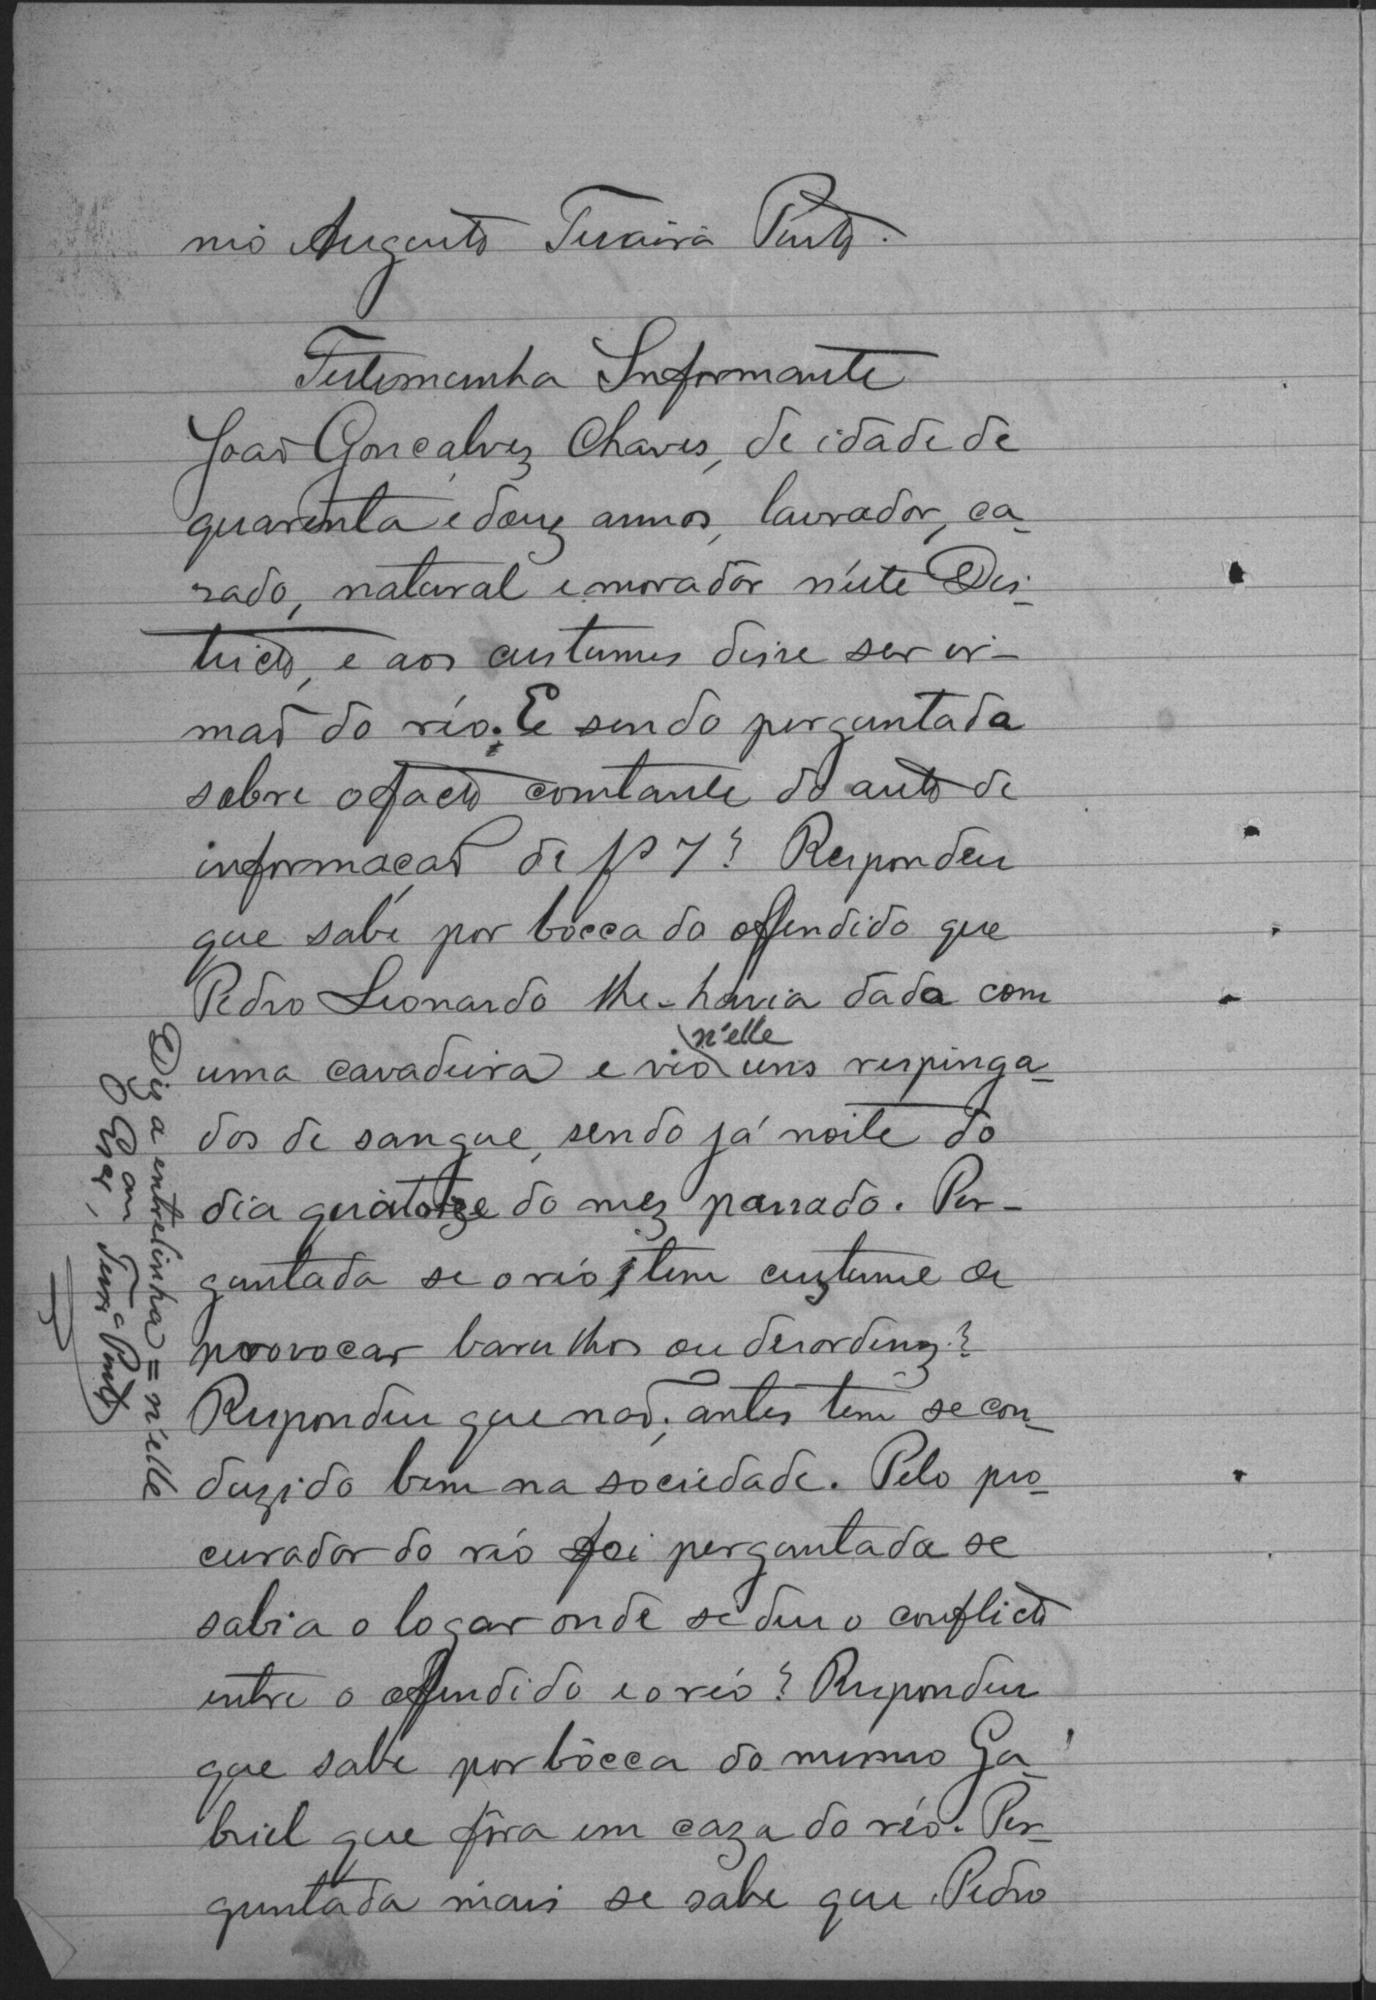 nio Augusto Teixeira Pinto.
Testemunha Informante
João Gonçalves Chaves, de idade de
quarenta e dous annos, lavrador, ca-
sado, natural e morador n'este Dis-
tricto, e aos custumes disse ser ir-
mão do réo. E sendo perguntada
sobre o facto constante do auto de
informação de fs 7? Respondeu
que sabe por bocca do offendido que
Pedro Leonardo lhe-havia dada com
uma cavadeira e vio n'elle uns respinga-
dos de sangue, sendo já noite do
dia quatorze do mez passado. Per-
guntada se o réo tem custume de
provocar barulhos ou desordens?
Respondeu que não; antes tem se con-
duzido bem na sociedade. Pelo pro-
curador do réo foi perguntada se
sabia o logar onde se deu o conflicto
entre o offendido e o réo? Respondeu
que sabe por bôcca do mesmo Ga-
briel que fôra em caza do réo. Per-
guntada mais se sabe que Pedro
Diz a entrelinha = n'elle
Teixra Pinto